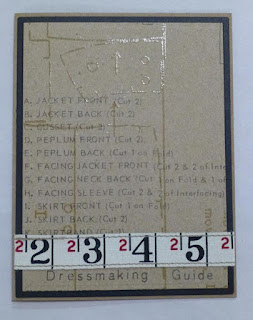 A. JACKET FRONT (Cut 2)
B. JACKET BACK (Cut 2)
C. GUSSET (Cut 2)
D. PEPLUM FRONT (Cut 2)
E. PEPLUM BACK (Cut 1 on Fold)
F. FACING JACKET FRONT (Cut 2 & 2 of Inter
G. FACING NECK BACK (Cut 1 on Fold & 1 of
H. FACING SLEEVE (Cut 2 & 2 of Interfacing)
I. SKIRT FRONT (Cut 1 on Fold)
J. SKIRT BACK (Cut 2)
2 2 2 3 2 4 2 5 2
Dressmaking Guide